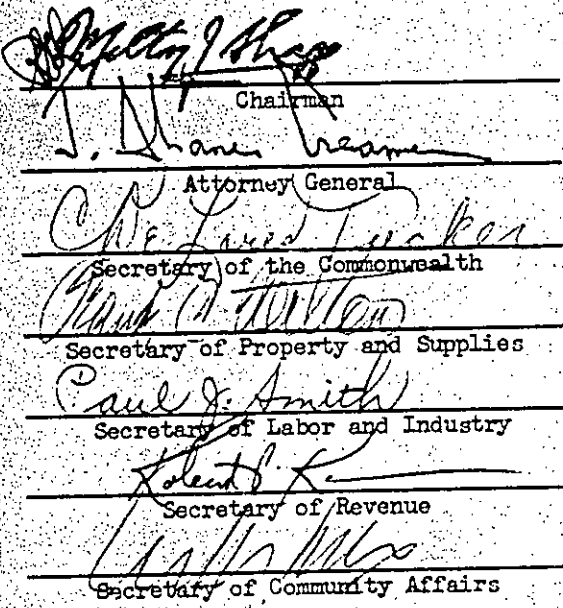 Milton J Shapp
Chairman
J. Shane Creamer
Attorney General
C. DeLores Tucker
Secretary of the Commonwealth
Secretary of Property and Supplies
Paul J. Smith
Secretary of Labor and Industry
Robert P. K
Secretary of Revenue
Secretary of Community Affairs